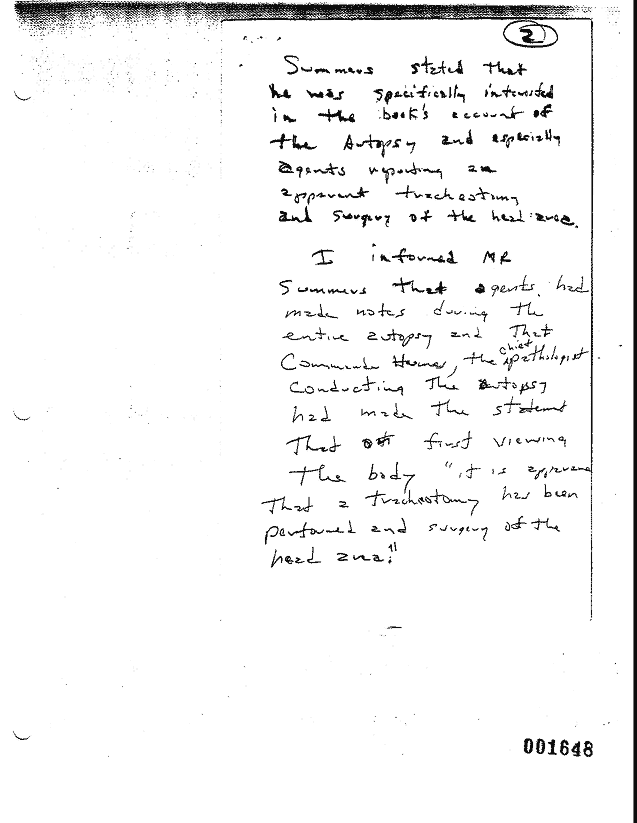 2
Summers stated that
he was specifically interested
in the book's account of
the Autopsy and especially
agents reporting an
apparent tracheostomy
and surgery of the head area.
I informed MR
Summers that agents had
made notes during the
entire autopsy and That
Commander Humes, the chief pathologist
Conducting The autopsy
had made The statement
That on first viewing
the body "it is apparent
That a tracheotomy has been
performed and surgery of the
head area."
001648